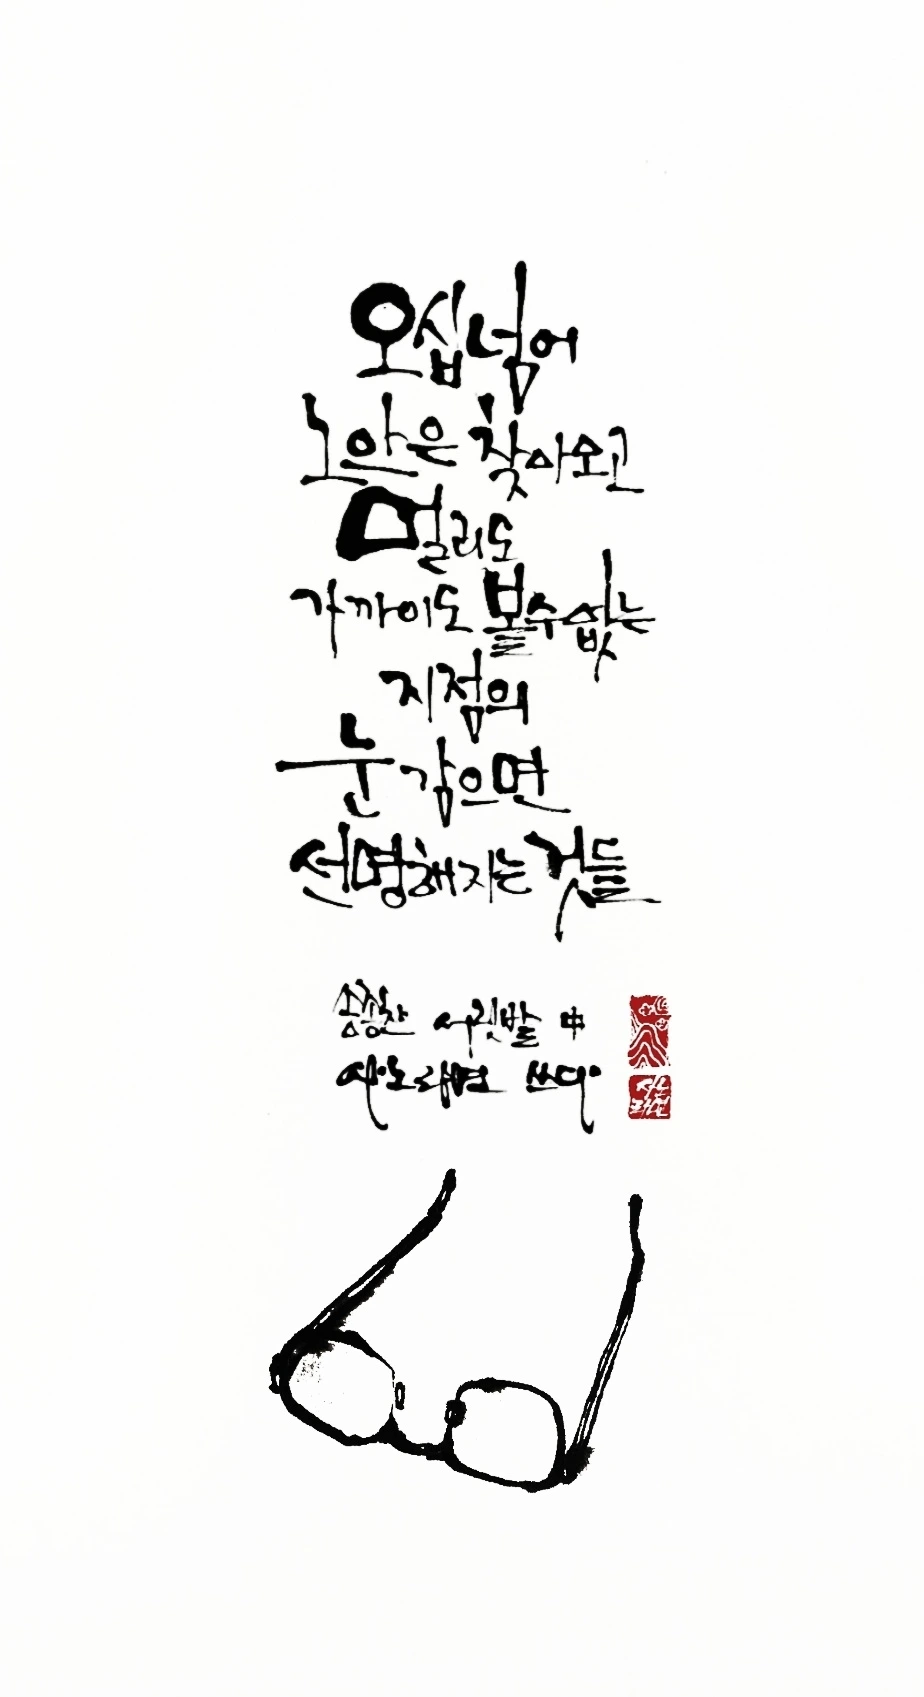 오십 넘어
노안은 찾아오고
멀리도
가까이도 볼수없는
지점의
눈 감으면
선명해지는 것들
서릿발 中
쓰다